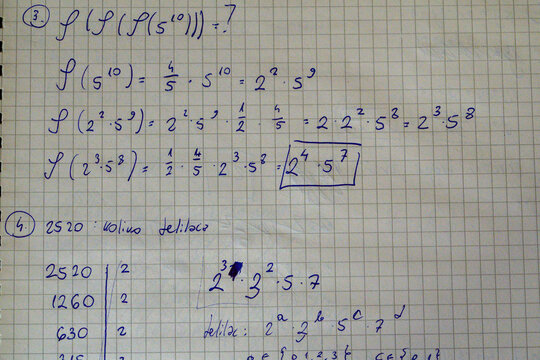 3. φ(φ(φ(5¹⁰))) = ?
φ(5¹⁰) = 4/5 · 5¹⁰ = 2² · 5⁹
φ(2² · 5⁹) = 2² · 5⁹ · 1/2 · 4/5 = 2 · 2² · 5⁸ = 2³ · 5⁸
φ(2³ · 5⁸) = 1/2 · 4/5 · 2³ · 5⁸ = 2⁴ · 5⁷
4. 2520 : koliko delilaca
2520 | 2
2³ · 3² · 5 · 7
1260 | 2
630 | 2
delilac: 2ᵃ · 3ᵇ · 5ᶜ · 7ᵈ